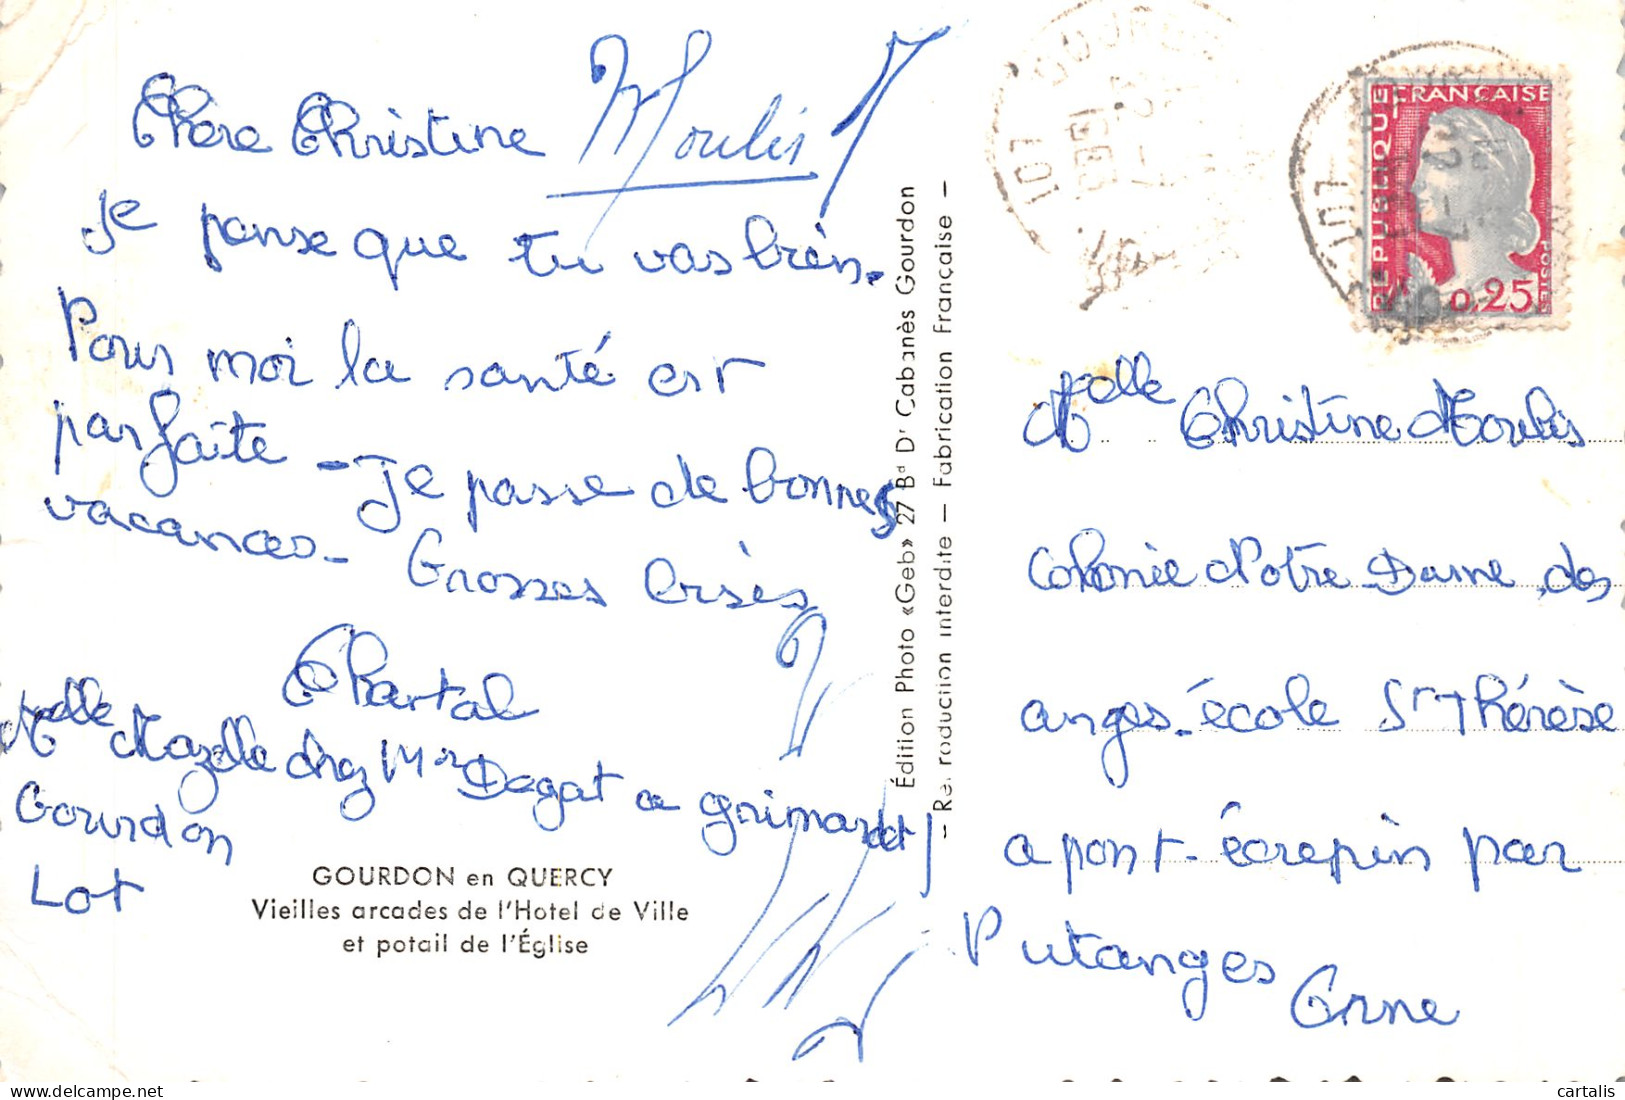 Chère Christine Moulis
je panse que tu vas bien.
Pour moi la santé est
parfaite - Je passe de bonnes
vacances - Grosses Bises
Chantal
Melle Mazelle chez Mr Dagat a grimardet
Gourdon
Lot
GOURDON en QUERCY
Vieilles arcades de l'Hotel de Ville
et potail de l'Église
Édition Photo «Geb» 27 Bd Dr Cabanès Gourdon
— Reproduction interdite — Fabrication Française —
GOURDON
LOT
1963
RÉPUBLIQUE FRANÇAISE
POSTES
0,25
LOT
Melle Christine Moulis
Colonie Notre Dame des
anges - école St Thérèse
a pont - écrepin par
Putanges Orne
www.cartalis.com
cartalis